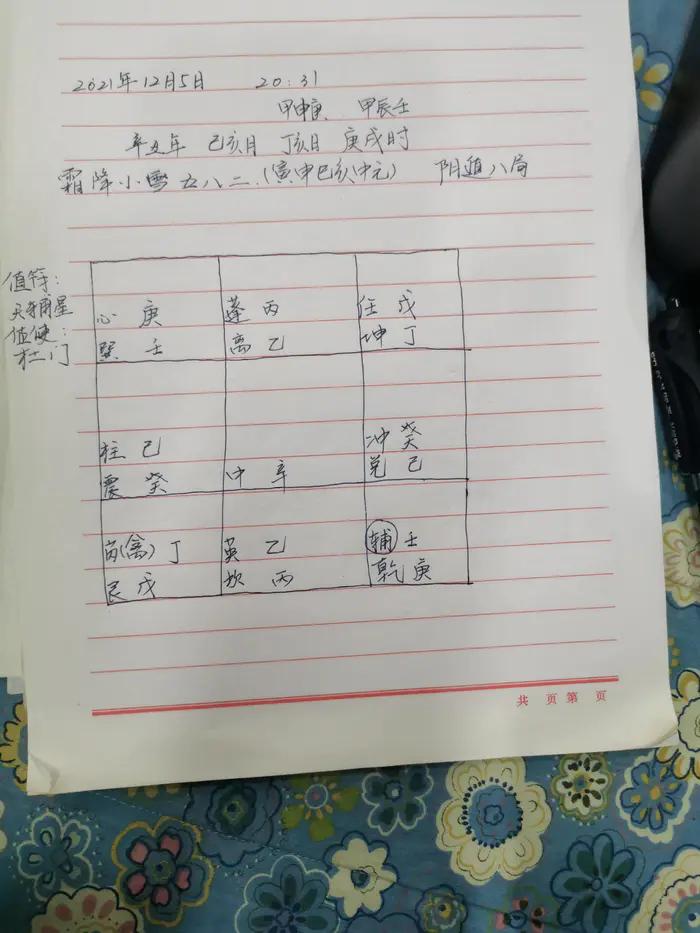 2021年12月5日 20:31
甲申庚 甲辰壬
辛丑年 己亥月 丁亥日 庚戌时
霜降小雪五八二.(寅申巳亥中元) 阴遁八局
值符:
天辅星
值使:
杜门
心 庚 蓬 丙 任 戊
巽 壬 离 乙 坤 丁
柱 己 冲 癸
震 癸 中 辛 兑 己
芮(禽) 丁 英 乙 辅 壬
艮 戊 坎 丙 乾 庚
共 页 第 页